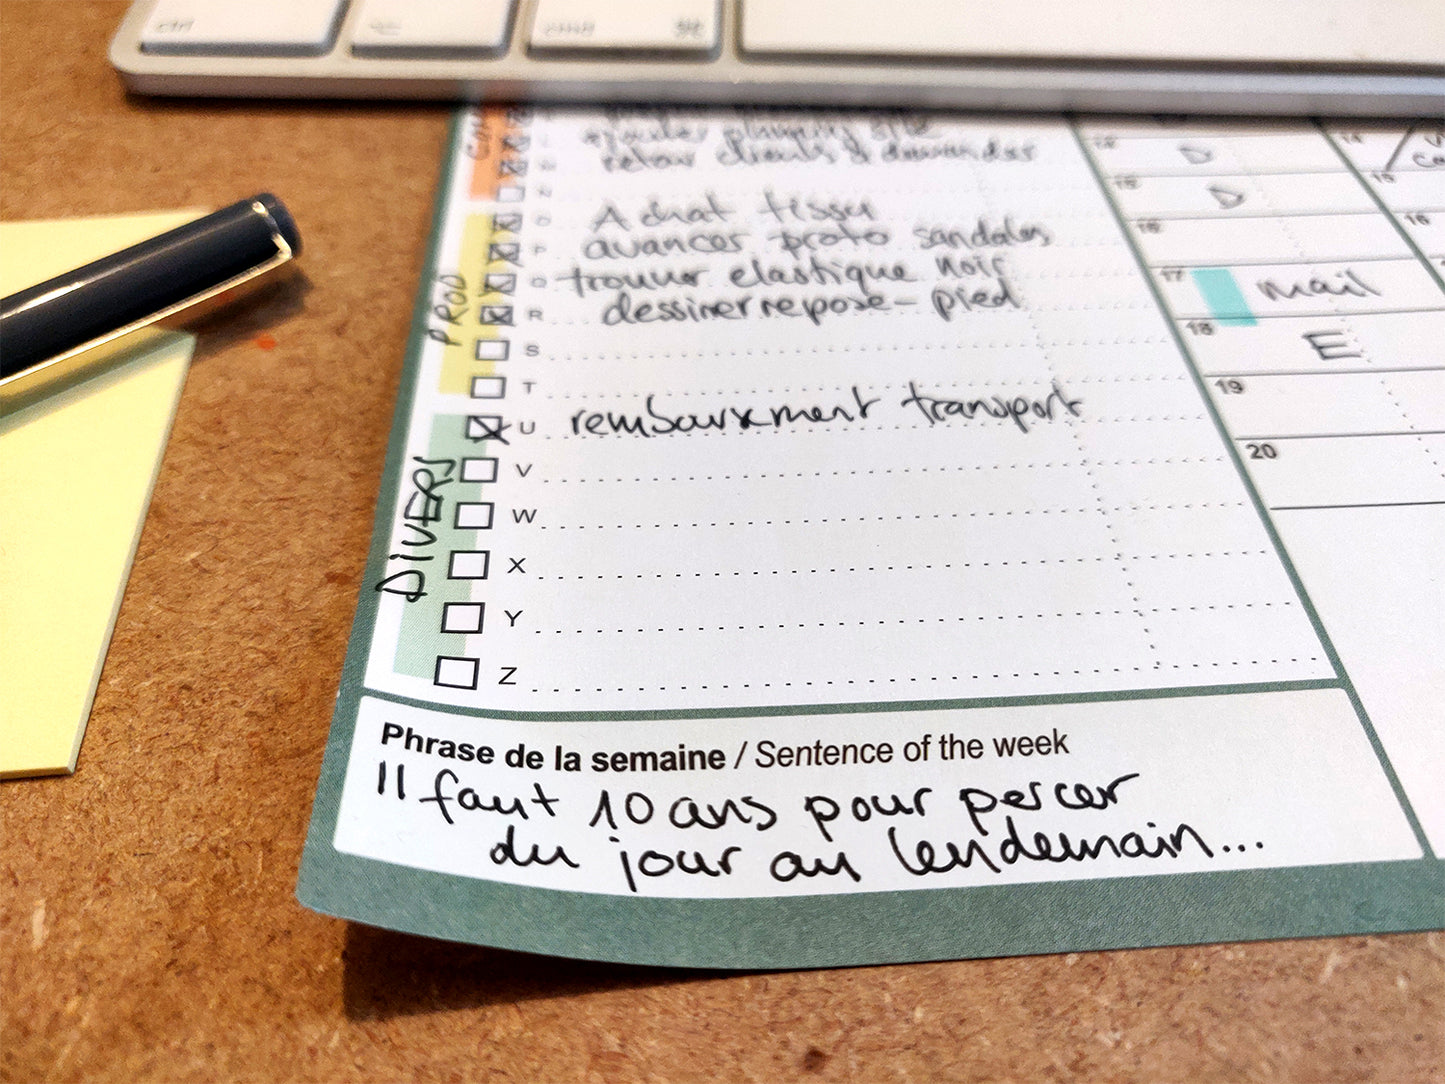 ctrl
cmd ⌘
ajouter site
retour clients & demandes
N
O Achat tissu
P avancer proto sandales
Q trouver elastique noir
R dessiner repose-pied
S
T
U remboursement transport
V
W
X
Y
Z
PROD
DIVERS
Phrase de la semaine / Sentence of the week
Il faut 10 ans pour percer
du jour au lendemain...
D
15 D
16
17 mail
18 E
19
20
14
15
16